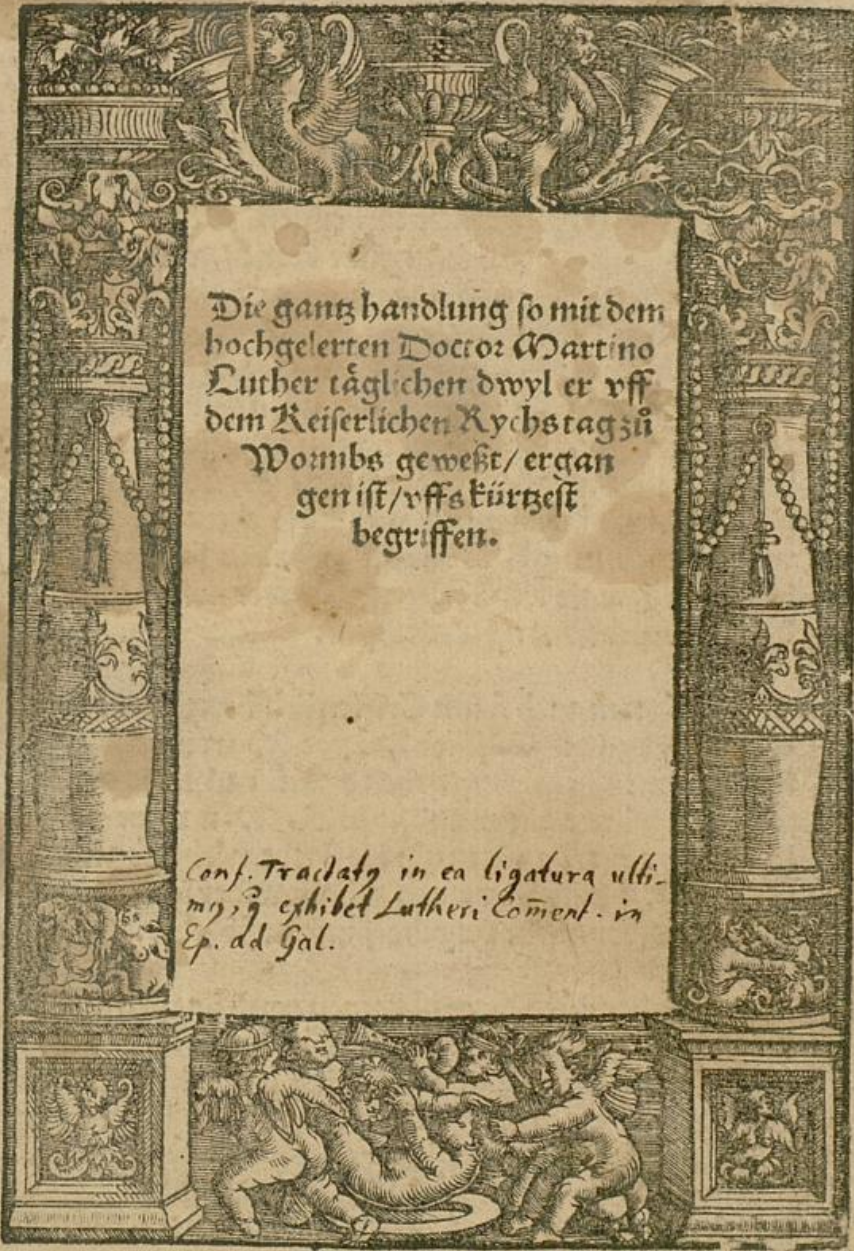 Die gantz handlung so mit dem
hochgelerten Doctor Martino
Luther täglichen dwyl er vff
dem Keiserlichen Rychstag zů
Wormbs geweßt/ ergan
gen ist/vffs kürtzest
begriffen.
Conf. Tractatꝯ in ea ligatura ulti-
mꝯ, q̃ exhibet Lutheri Com̄ent. in
Ep. ad Gal.